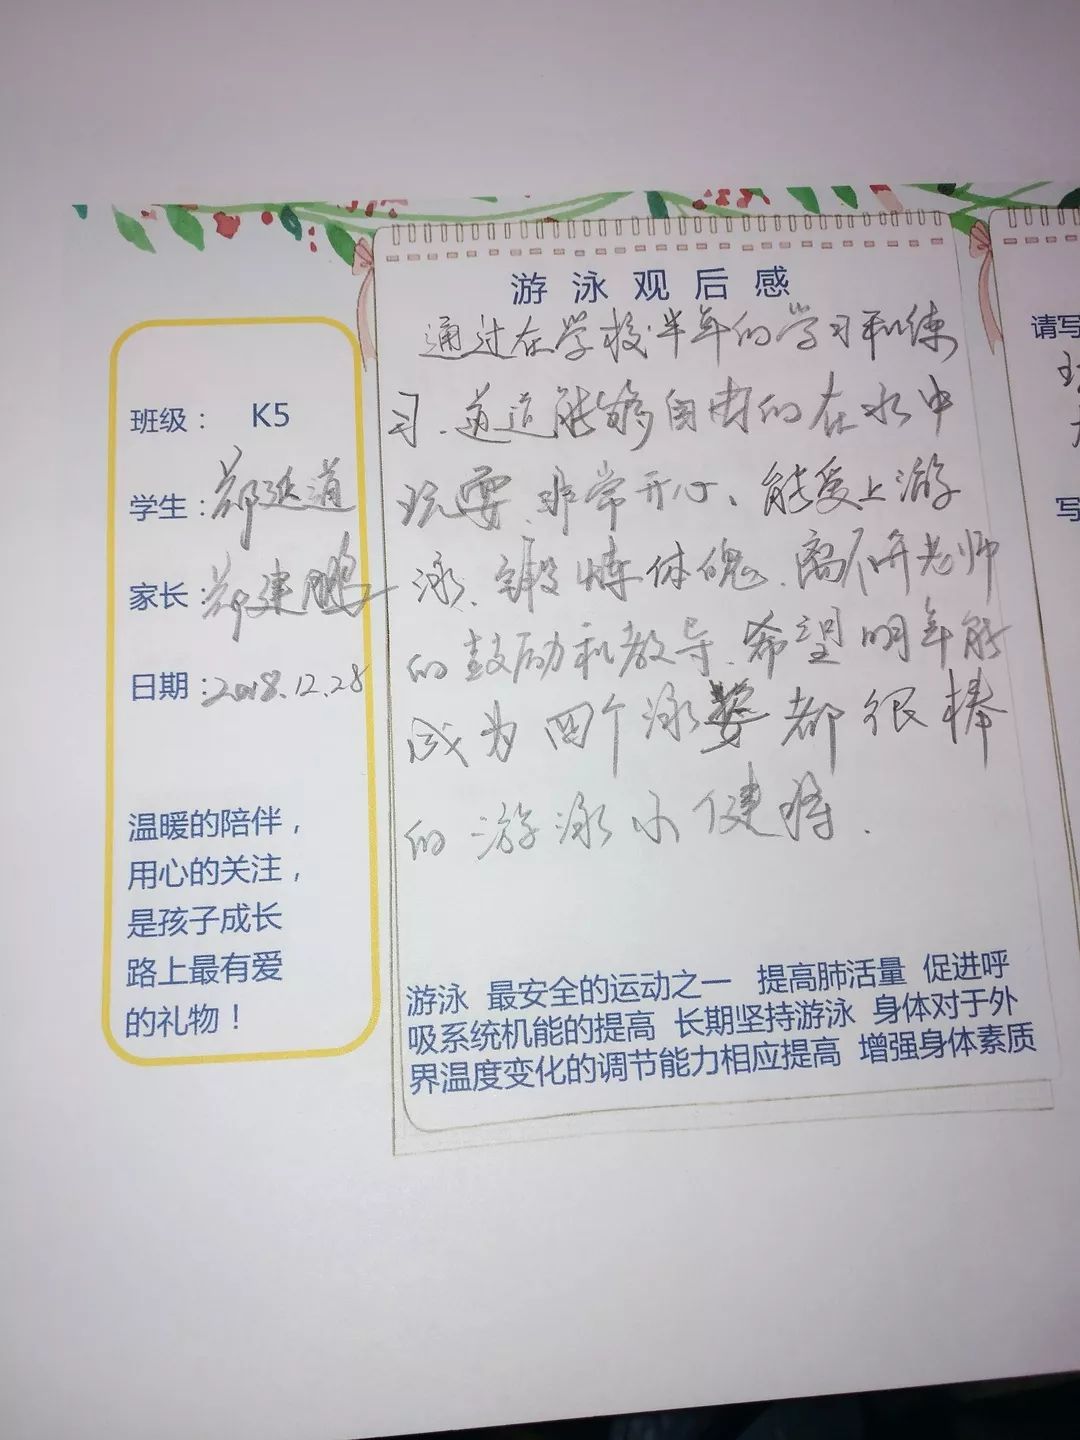 游泳观后感
班级： K5
学生：郑延道
家长：郑建鹏
日期：2018.12.28
温暖的陪伴，
用心的关注，
是孩子成长
路上最有爱
的礼物！
通过在学校半年的学习和练
习、道道能够自由的在水中
玩耍、非常开心、能爱上游
泳、锻炼体魄、离不开老师
的鼓励和教导、希望明年能
成为四个泳姿都很棒
的游泳小健将.
游泳 最安全的运动之一 提高肺活量 促进呼
吸系统机能的提高 长期坚持游泳 身体对于外
界温度变化的调节能力相应提高 增强身体素质
请写
写